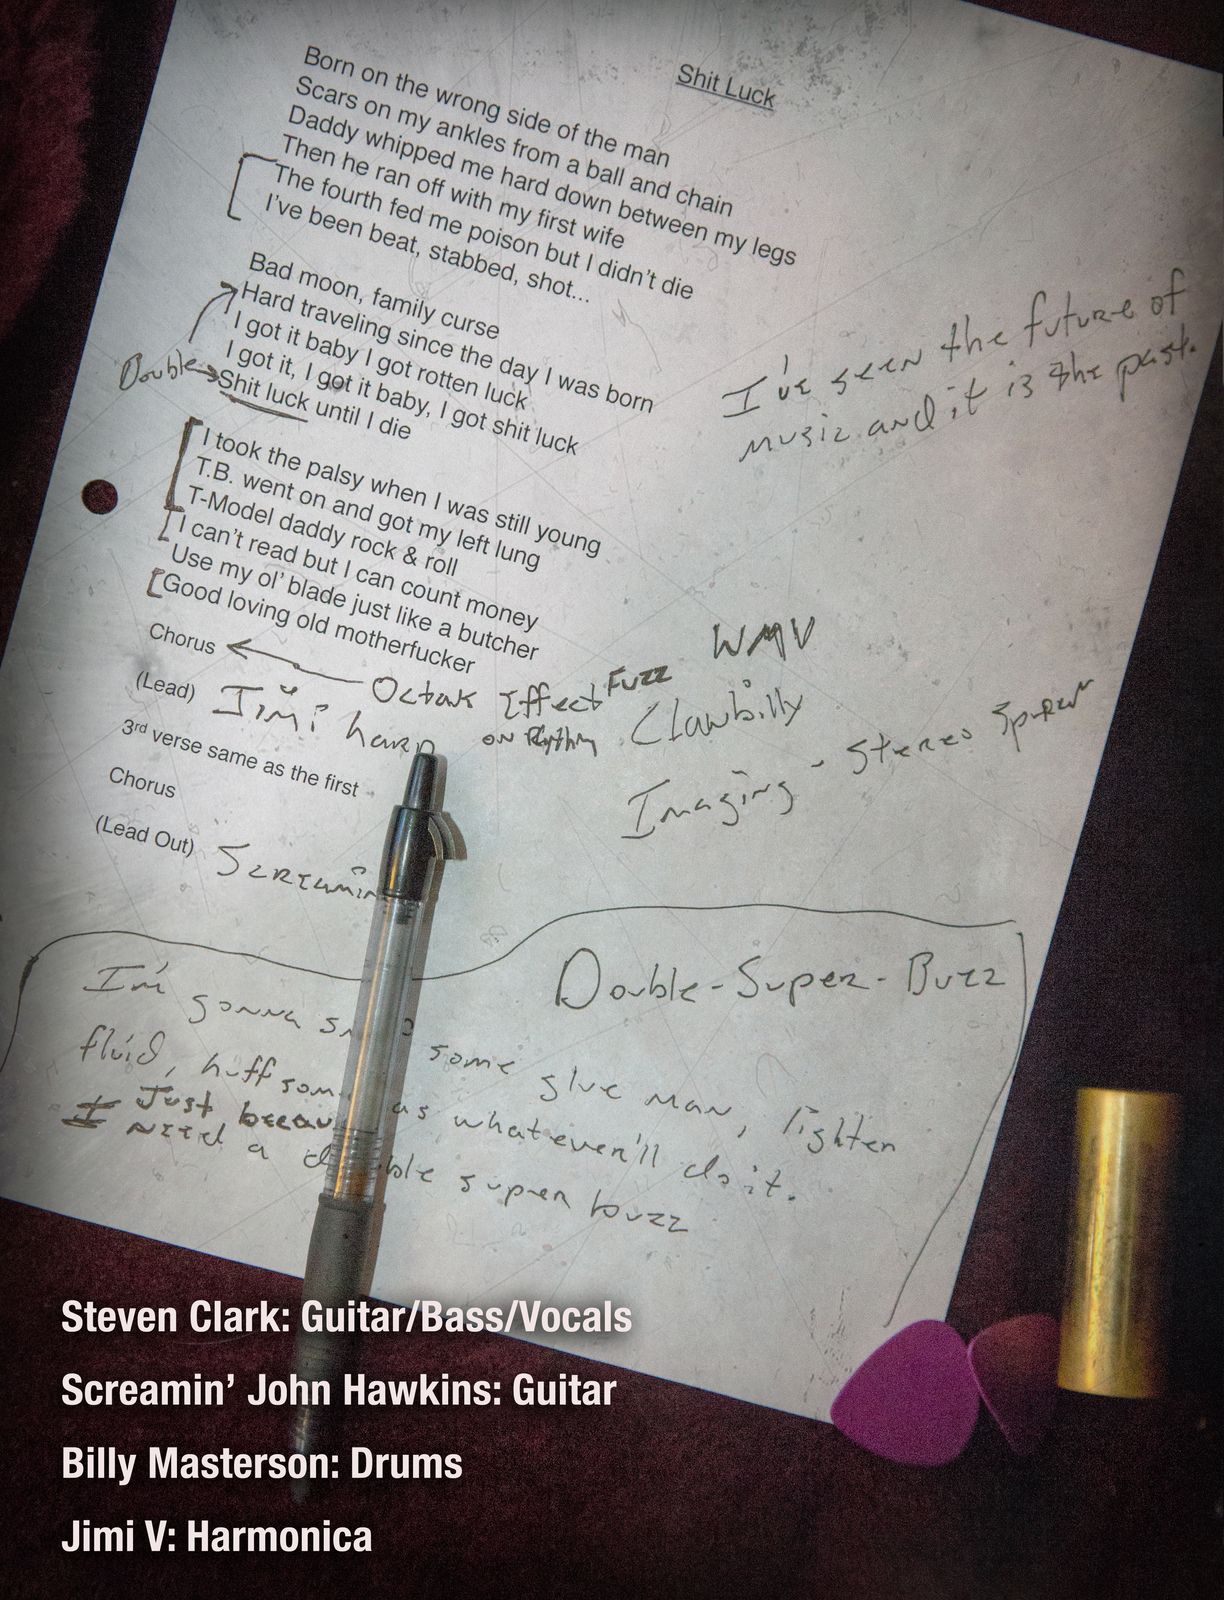 Shit Luck
Born on the wrong side of the man
Scars on my ankles from a ball and chain
Daddy whipped me hard down between my legs
Then he ran off with my first wife
The fourth fed me poison but I didn't die
I've been beat, stabbed, shot...
Bad moon, family curse
Hard traveling since the day I was born
I got it baby I got rotten luck
I got it, I got it baby, I got shit luck
Double
Shit luck until I die
I've seen the future of
music and it is the past.
I took the palsy when I was still young
T.B. went on and got my left lung
T-Model daddy rock & roll
I can't read but I can count money
Use my ol' blade just like a butcher
Good loving old motherfucker
Chorus
Octave Effect Fuzz
on Rhythm
WMV
Clawbilly
(Lead) Jimi harp
Imaging - Stereo Spread
3rd verse same as the first
Chorus
(Lead Out) Screamin
Double-Super-Buzz
I'm gonna some glue man, lighten
fluid, huff as whatever'll do it.
Just
I need a double super buzz
Steven Clark: Guitar/Bass/Vocals
Screamin' John Hawkins: Guitar
Billy Masterson: Drums
Jimi V: Harmonica